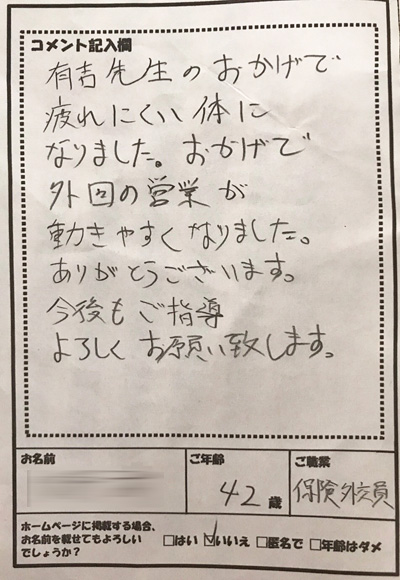 コメント記入欄
有吉先生のおかげで
疲れにくい体に
なりました。おかげで
外回の営業が
動きやすくなりました。
ありがとうございます。
今後もご指導
よろしくお願い致します。
お名前
ご年齢
ご職業
42歳
保険外交員
ホームページに掲載する場合、
お名前を載せてもよろしい
でしょうか?
□はい ☑いいえ □匿名で □年齢はダメ